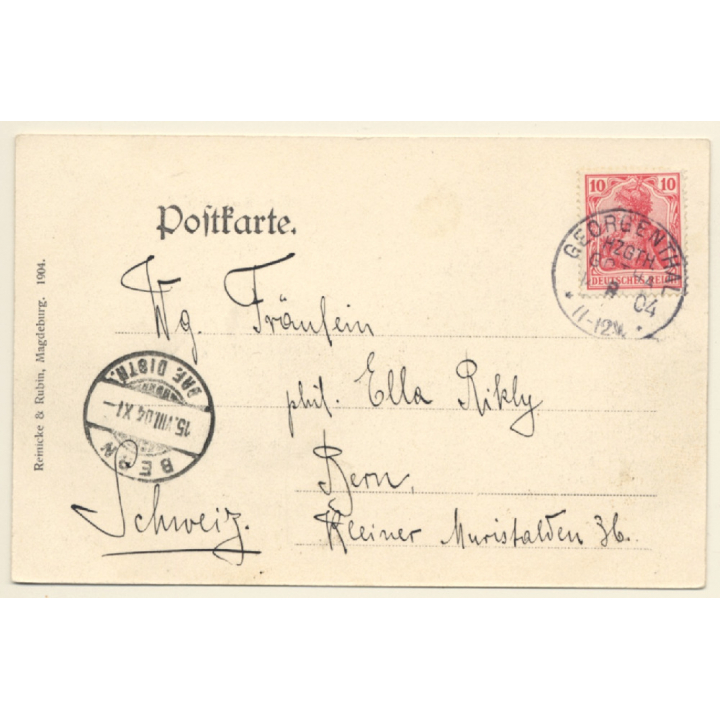 Postkarte.
10 10
DEUTSCHES REICH
GEORGENTHAL
HZGTH.
04
11-12V.
Wg. Fräulein
phil. Ella Rikly
Bern,
Kleiner Muristalden 36.
Schweiz.
BERN
15.VIII.04 XI-
BRF. DISTR.
Reinicke & Rubin, Magdeburg. 1904.